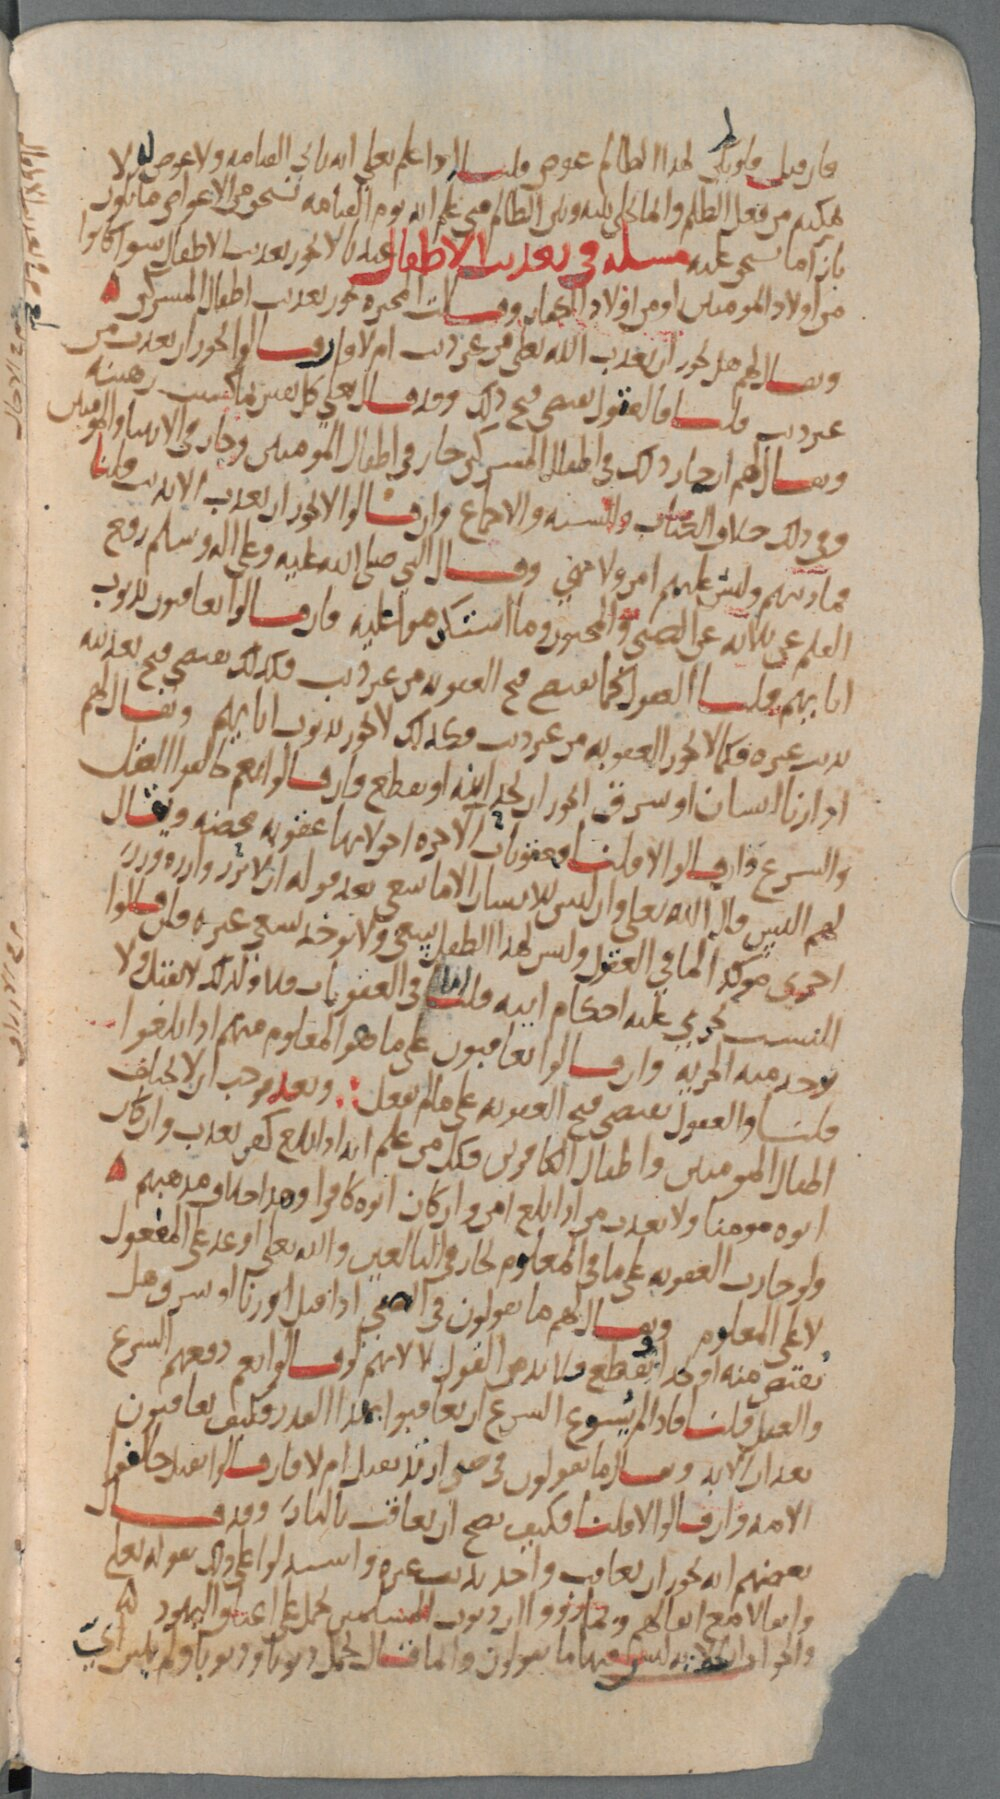 فان قيل فلو لم يكن لهذا الظالم عوض قلنا اذا علم تعالى انه ياتي القيامه ولا عوض له لا
يمكنه من فعل الظلم وانما يخلي بينه وبين الظالم متى علم انه يوم القيامه يستحق من الاعواض ما يكون
بازاء ما يستحق عليه مسله في تعذيب الاطفال عندنا لا يجوز تعذيب الاطفال سوا كانوا
من اولاد المومنين او من اولاد الكفار وقالت المجبره يجوز تعذيب اطفال المشركين
ويقال لهم هل يجوز ان يعذب الله تعالى من غير ذنب ام لا فان قالوا يجوز ان يعذب من
غير ذنب قلنا فالعقول تقتضي قبح ذلك وقد قال تعالى كل نفس بما كسبت رهينه
ويقال لهم ان جاز ذلك في اطفال المشركين جاز في اطفال المومنين وجاز في الانبيا والمومنين
وفي ذلك خلاف الكتاب والسنه والاجماع وان قالوا لا يجوز ان يعذب الا بذنب قلنا
فما ذنبهم وليس عليهم امر ولا نهي وقال النبي صلى الله عليه وعلى اله وسلم رفع
القلم عن ثلاثه عن الصبي والمجنون وما استكرهوا عليه فان قالوا يعاقبون بذنوب
ابايهم قلنا العقول كما تقتضي قبح العقوبه من غير ذنب فكذلك تقتضي قبح تعذيبه
بذنب غيره فكما لا يجوز العقوبه من غير ذنب فكذلك لا يجوز بذنوب ابايهم ويقال لهم
اذا زنا انسان او سرق ايجوز ان يحد ابنه او يقطع فان قالوا نعم خالفوا العقل
والشرع وان قالوا لا قلنا فعقوبات الاخره احق لانها عقوبه محضه ويقال
لهم اليس قال الله تعالى وان ليس للانسان الا ما سعى بعد قوله ان لا تزر وازره وزر
اخرى موكد لما في العقول وليس لهذا الطفل سعي ولا يوخذ بسعي غيره فان قالوا
اليس يجري عليه احكام ابيه قلنا اما في العقوبات فلا ولذلك لا يقتل ولا
يوخذ منه الجزيه وان قالوا يعاقبون على ما هو المعلوم منهم اذا بلغوا
قلنا والعقول تقتضي قبح العقوبه على ما لم يفعل وبعد فوجب ان لا يختلف
اطفال المومنين واطفال الكافرين فكل من علم انه اذا بلغ كفر يعذب وان كان
ابوه مومنا ولا يعذب من اذا بلغ امن وان كان ابوه كافرا وهذا خلاف مذهبهم
ولو جازت العقوبه على ما في المعلوم لجاز في البالغين والله تعالى اوعد على المفعول
لا على المعلوم ويقال لهم ما يقولون في الصبي اذا قتل او زنا او سرق هل
يقتص منه او يحد او يقطع فلا بد من القول لا لانهم لو قالوا نعم دفعهم الشرع
والعقل قلنا فاذا لم يسوغ الشرع ان يعاقبوا بهذا القدر فكيف يعاقبون
بعذاب الابد ويقال ما يقولون في صبي ارتد يقتل ام لا فان قالوا يقتل خالفوا
الامه وان قالوا لا قلنا فكيف يصح ان يعاقب بالنار وقد قال
بعضهم انه يجوز ان يعاقب واحد بذنب غيره واستدلوا على ذلك بقوله تعالى
واثقالا مع اثقالهم وبما رووا ان ذنوب المسلمين تحمل على اعناق اليهود
والجواب ان الايه ليس فيها ما يقولون وانما قال يحمل ذنوبا وذنوبا ولم يبين اي